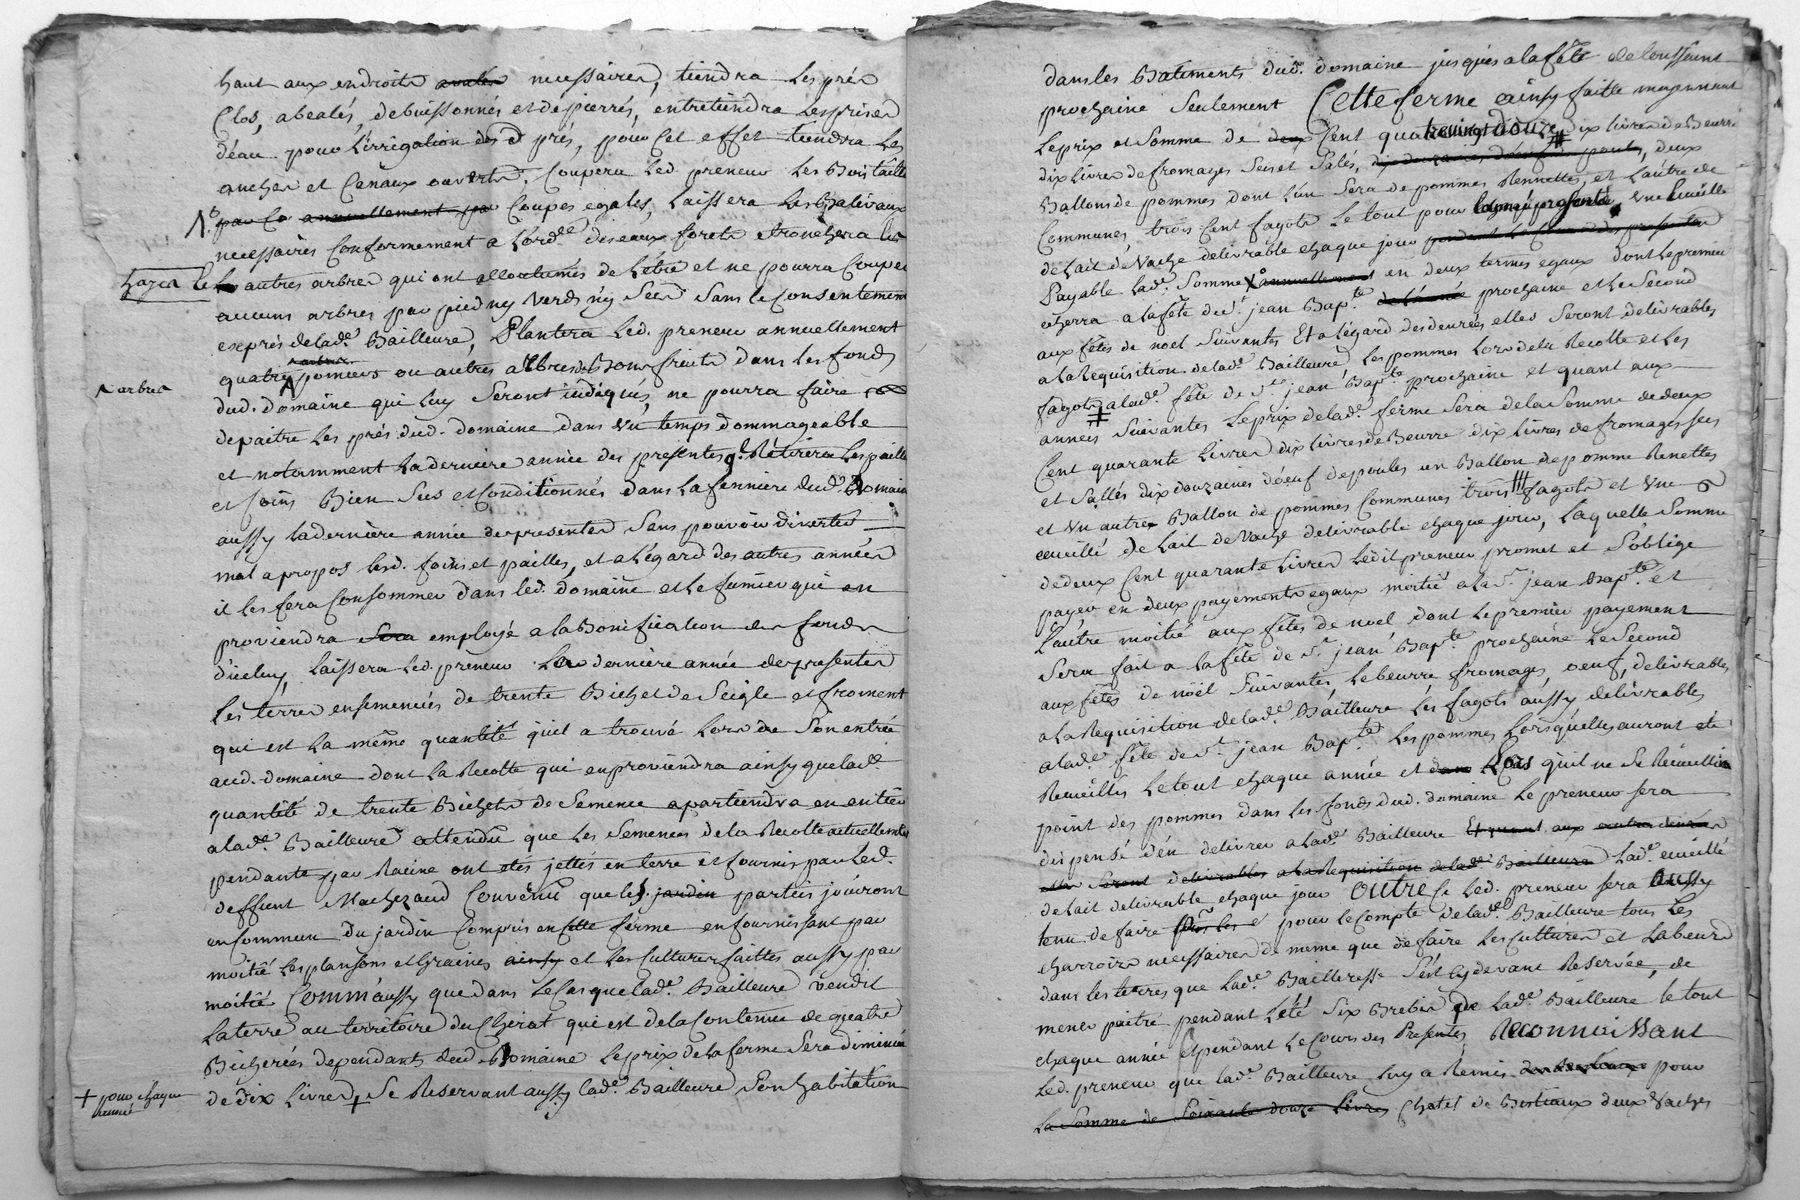 haut aux endroits necessaires, tiendra les prés
Clos, abealés, debuissonnés et depierrés, entretiendra les prises
d'eau pour l'irrigation des d prés, pour cet effet tiendra les
anches et Canaux ouverts. Coupera led. preneur les Bois taillis
par annuellement par Coupes egales, laissera les Balivaux
necessaires Conformement a l'ord.ce des eaux forets etronchera les
hayes et
autres arbres qui ont accoutumés de l'être et ne pourra Couper
aucuns arbres par pied ny verds ny Secs Sans le Consentement
exprés de lad.e Bailleure, Plantera led. preneur annuellement
arbres
quatre pomiers ou autres arbres Bons fruits dans les fonds
^ arbres
dud. domaine qui luy Seront indiqués, ne pourra faire
depaitre les prés dud. domaine dans un temps dommageable
et notamment la derniere année des presentes q.l Retirera les pailles
et foins Bien Secs et Conditionnés dans la fenniere dud. Domaine
aussy la dernière année des presentes Sans pouvoir divertir
mal a propos lesd. foins et pailles, et a l'égard des autres années
il les fera Consommer dans led. domaine et le fumier qui en
proviendra Sera employé a la Bonification des fonds
d'iceluy, laissera led. preneur la derniere année des presentes
les terres ensemencées de trente Bichets de Seigle et froment
qui est la même quantité qu'il a trouvé lors de Son entrée
aud. domaine dont la Recolte qui en proviendra ainsy que lad.e
quantité de trente Bichets de Semence apartiendra en entier
a lad.e Bailleure attendu que les Semences de la Recolte actuellement
pendante par Racine ont etés jettés en terre et fournis par led.
deffunt Machezaud Convenu que les jardin parties joüiront
en Commun du jardin Compris en Cette ferme en fournissant par
moitié les plansons et Graines ainsy et les Cultures faittes aussy par
moitié Comm'aussy que dans le Cas que lad.e Bailleure vendit
la terre au territoire du Cherat qui est de la Contenue de quatre
Bicherées dependants dud. Domaine le prix de la ferme Sera diminué
de dix livres + Se Reservant aussy lad.e Bailleure Son habitation
+ pour chaque
année
dans les Batiments dud. domaine jusques a la fête de toussaint
prochaine Seulement Cette ferme ainsy faitte moyennant
le prix et Somme de deux Cent quatrevingt douze dix livres de Beurre
dix livres de fromages Secs et Salés, dix douzaines d'oeufs de poules, deux
Ballons de pommes dont l'un Sera de pommes Rennettes, et l'autre de
Communes, trois Cent fagots le tout pour, une Cueillé
de lait de Vache delivrable chaque jour pendant le Cours des presentes
Payable lad.e Somme annuellement en deux termes egaux Dont le premier
echerra a la fête de S.t jean Bap.te de l'année prochaine et le Second
aux fêtes de noel Suivantes Et a l'égard des denrées elles Seront delivrables
a la Requisition de lad.e Bailleure, les pommes Lors de la Recolte et les
fagots a lad.e fête de S.t jean Bap.te prochaine et quant aux
années Suivantes le prix de lad.e ferme Sera de la Somme de deux
Cent quarante livres dix livres de Beurre dix livres de fromages secs
et Sallés dix douzaines d'oeuf de poules un Ballon de pomme Renettes
et un autre Ballon de pommes Communes trois fagots et une
cueillé de lait de Vache delivrable chaque jour, laquelle Somme
de deux Cent quarante livres ledit preneur promet et S'oblige
payer en deux payements egaux moitié a la S.t jean Bap.te et
l'autre moitié aux fêtes de noel dont le premier payement
Sera fait a la fête de S.t jean Bap.te prochaine le Second
aux fêtes de noël Suivantes, le beurre, fromages, oeuf, delivrables
a la Requisition de lad.e Bailleure les fagots aussy delivrables
a lad.e fête de S.t jean Bap.te les pommes Lorsqu'elles auront été
Recueillis le tout chaque année et dans Cas qu'il ne Se Recueillit
point des pommes dans les fonds dud. domaine le preneur sera
dispensé d'en delivrer a lad.e Bailleure Et quant aux autres denrées
elles Seront delivrables a la Requisition de lad.e Bailleure lad.e cueillé
de lait delivrable chaque jour Outre Ce led. preneur sera Aussy
tenu de faire pour le Compte de lad.e Bailleure tous les
charrois necessaires de meme que de faire les Cultures et labeurs
dans les terres que lad.e Bailleresse S'est Cy devant Reservée, de
mener paitre pendant l'été Six Brebis De lad.e Bailleure le tout
chaque année et pendant le Cours des Presentes Reconnoissant
Led. preneur que lad.e Bailleure luy a Remis pour
la Somme de Soixante douze livres Chatel de Bestiaux deux Vaches